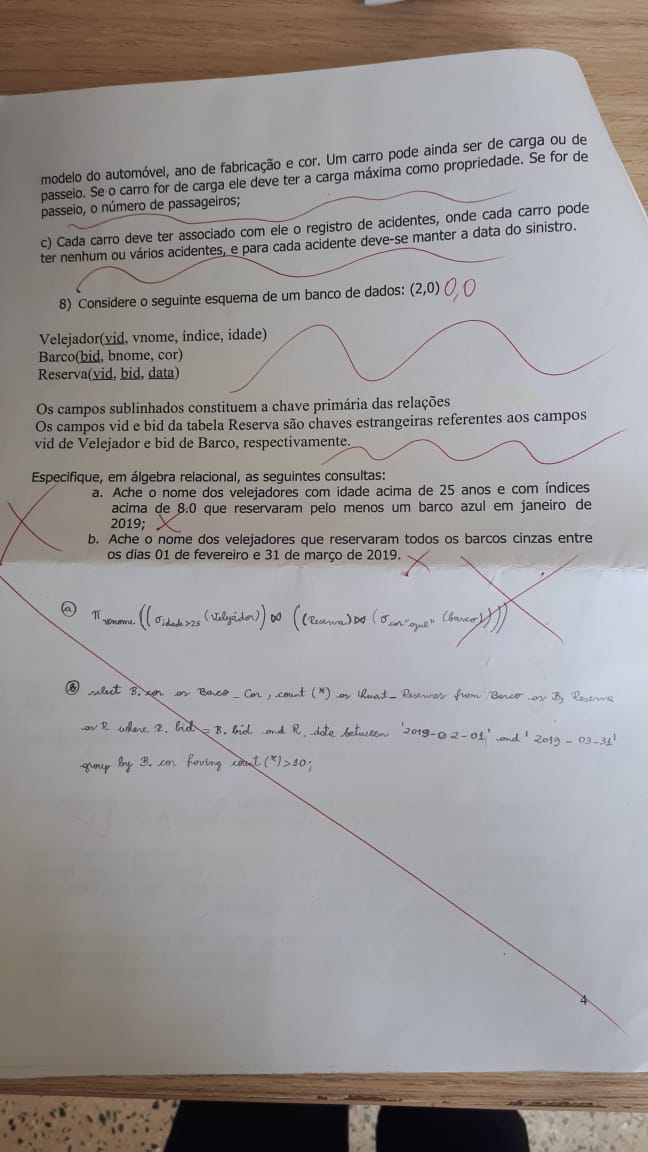 modelo do automóvel, ano de fabricação e cor. Um carro pode ainda ser de carga ou de
passeio. Se o carro for de carga ele deve ter a carga máxima como propriedade. Se for de
passeio, o número de passageiros;
c) Cada carro deve ter associado com ele o registro de acidentes, onde cada carro pode
ter nenhum ou vários acidentes, e para cada acidente deve-se manter a data do sinistro.
8) Considere o seguinte esquema de um banco de dados: (2,0) 0,0
Velejador(vid, vnome, índice, idade)
Barco(bid, bnome, cor)
Reserva(vid, bid, data)
Os campos sublinhados constituem a chave primária das relações
Os campos vid e bid da tabela Reserva são chaves estrangeiras referentes aos campos
vid de Velejador e bid de Barco, respectivamente.
Especifique, em álgebra relacional, as seguintes consultas:
a. Ache o nome dos velejadores com idade acima de 25 anos e com índices
acima de 8.0 que reservaram pelo menos um barco azul em janeiro de
2019;
b. Ache o nome dos velejadores que reservaram todos os barcos cinzas entre
os dias 01 de fevereiro e 31 de março de 2019.
a π ((σ idade>25 (Velejador)) ⋈ ((Reserva) ⋈ (σ (barco))))
select B. cor as Barco_Cor, count (*) as Reservas from Barco as B, Reserva
as R where R. bid = B. bid and R. date between '2019-02-01' and '2019-03-31'
group by B. cor having count(*)>10;
4